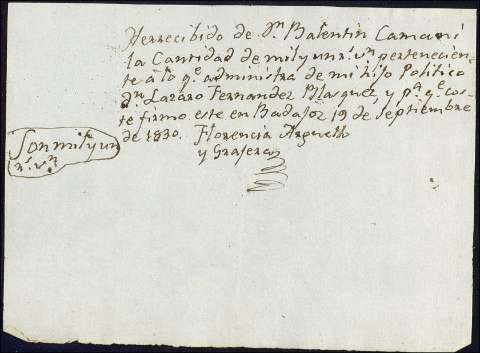 Herrecibido de Dn Balentin Camani
la Cantidad de mil y un rs. vn pertenecien-
te a lo qe administra de mi hijo Politico
Dn Lazaro Fernandez Blasquez, y pa qe cos-
te firmo este en Badajoz 19 de Septiembre
de 1830. Florencia Arguello
y Grajera
Son mil y un
rs. vn